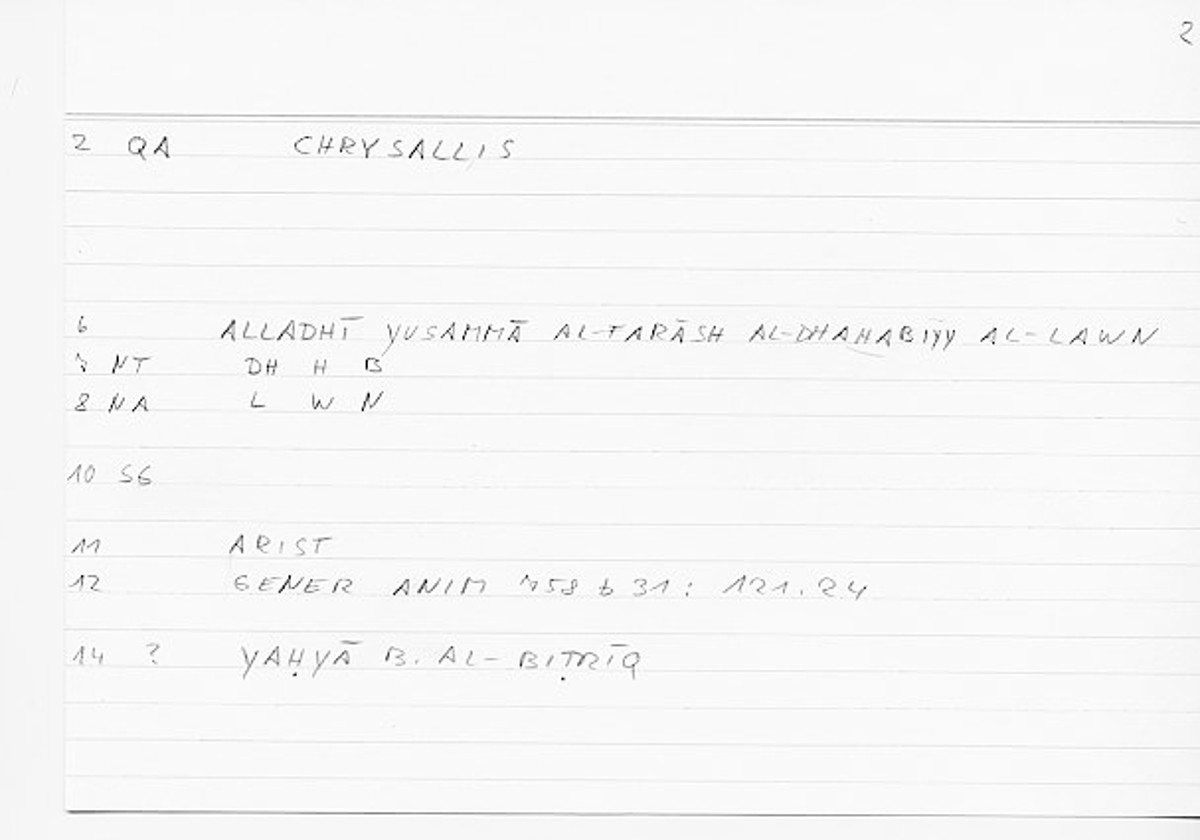 2
2 QA CHRYSALLIS
6 ALLADHĪ YUSAMMĀ AL-FARĀSH AL-DHAHABIYY AL-LAWN
7 NT DH H B
8 NA L W N
10 SG
11 ARIST
12 GENER ANIM 758 b 31: 121.24
14 ? YAḤYĀ B. AL-BIṬRĪQ